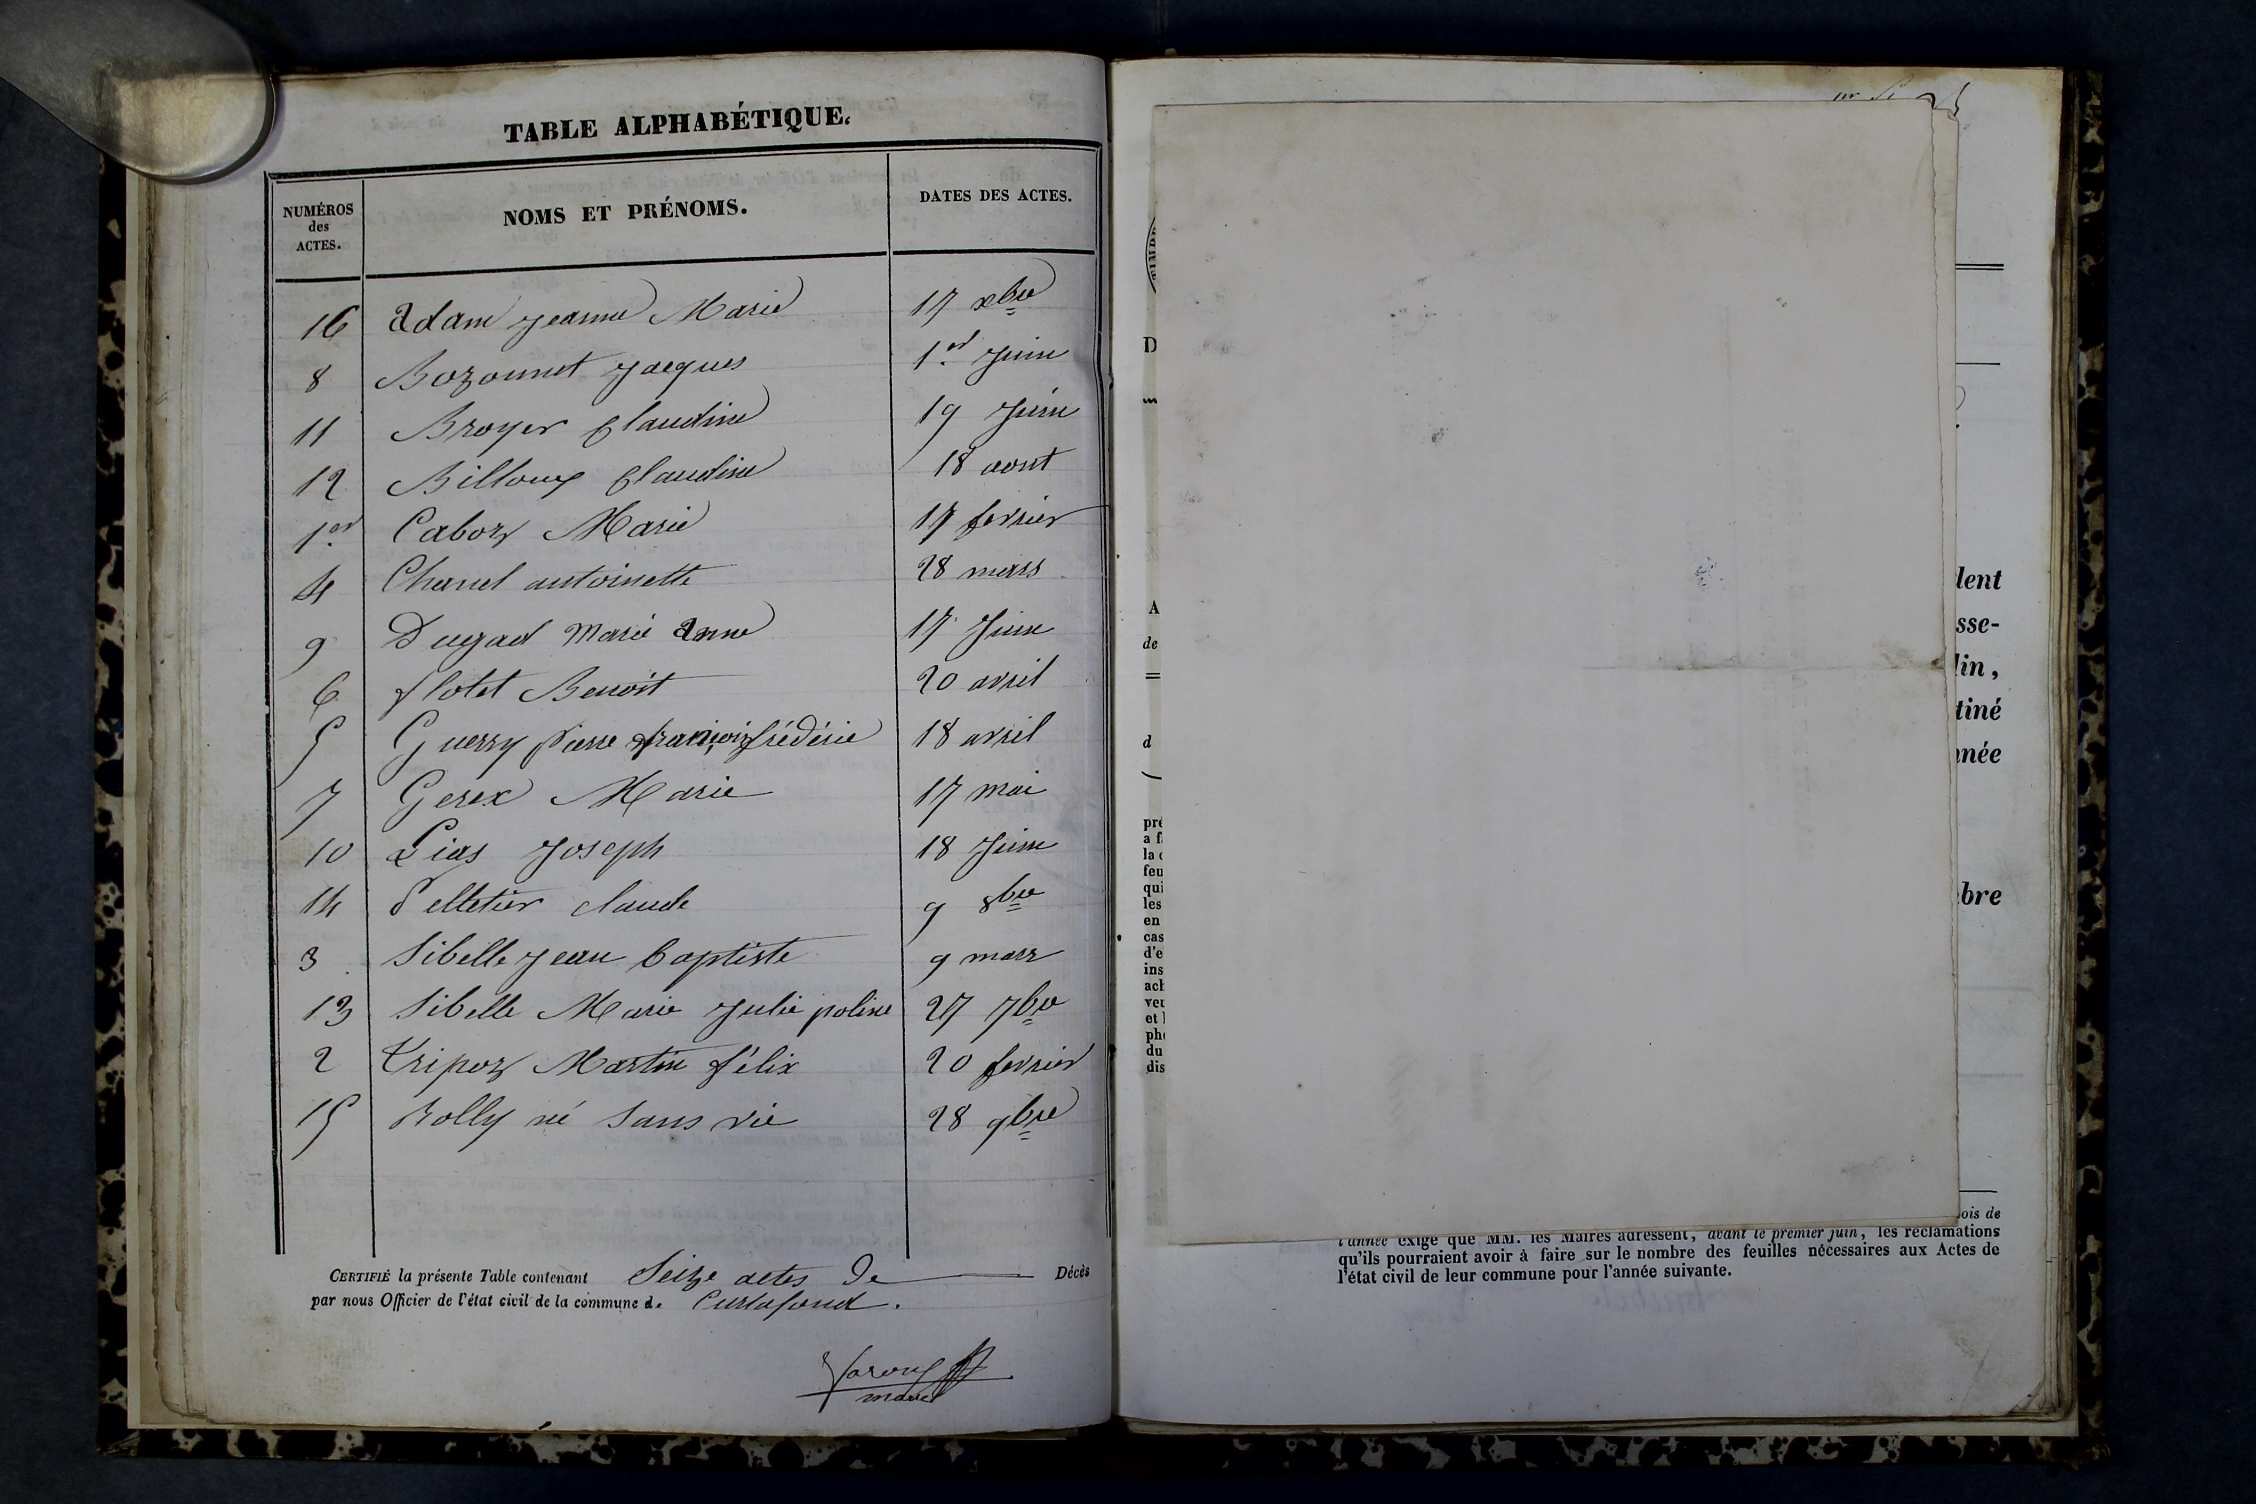 TABLE ALPHABÉTIQUE.
NUMÉROS
des
ACTES.
NOMS ET PRÉNOMS.
DATES DES ACTES.
16 Adam Jeanne Marie 17 xbre
8 Bozonnet Jacques 1er Juin
11 Broyer Claudine 19 Juin
12 Billoux Claudine 18 aout
1er Caboz Marie 17 fevrier
4 Chanel antoinette 28 mars
9 Dugad Marie Anne 17 Juin
6 flotet Benoit 20 avril
5 Guerry Pierre françois frédéric 18 avril
7 Gerex Marie 17 mai
10 Lias Joseph 18 Juin
14 Pelletier claude 9 8bre
3 Sibelle Jean baptiste 9 mars
13 Sibelle Marie Julie poline 27 7bre
2 tripoz Martin félix 20 fevrier
15 Rolly né sans vie 28 9bre
CERTIFIÉ la présente Table contenant Seize actes de Décès
par nous Officier de l'état civil de la commune d. Curtafond.
maire
D
A
de
d
pré
a f
la c
feu
qui
les
en
cas
d'e
ins
ach
veu
et l
pho
du
dis
lent
sse-
lin,
tiné
nnée
bre
ois de
l'année exige que MM. les Maires adressent, avant le premier juin, les réclamations
qu'ils pourraient avoir à faire sur le nombre des feuilles nécessaires aux Actes de
l'état civil de leur commune pour l'année suivante.